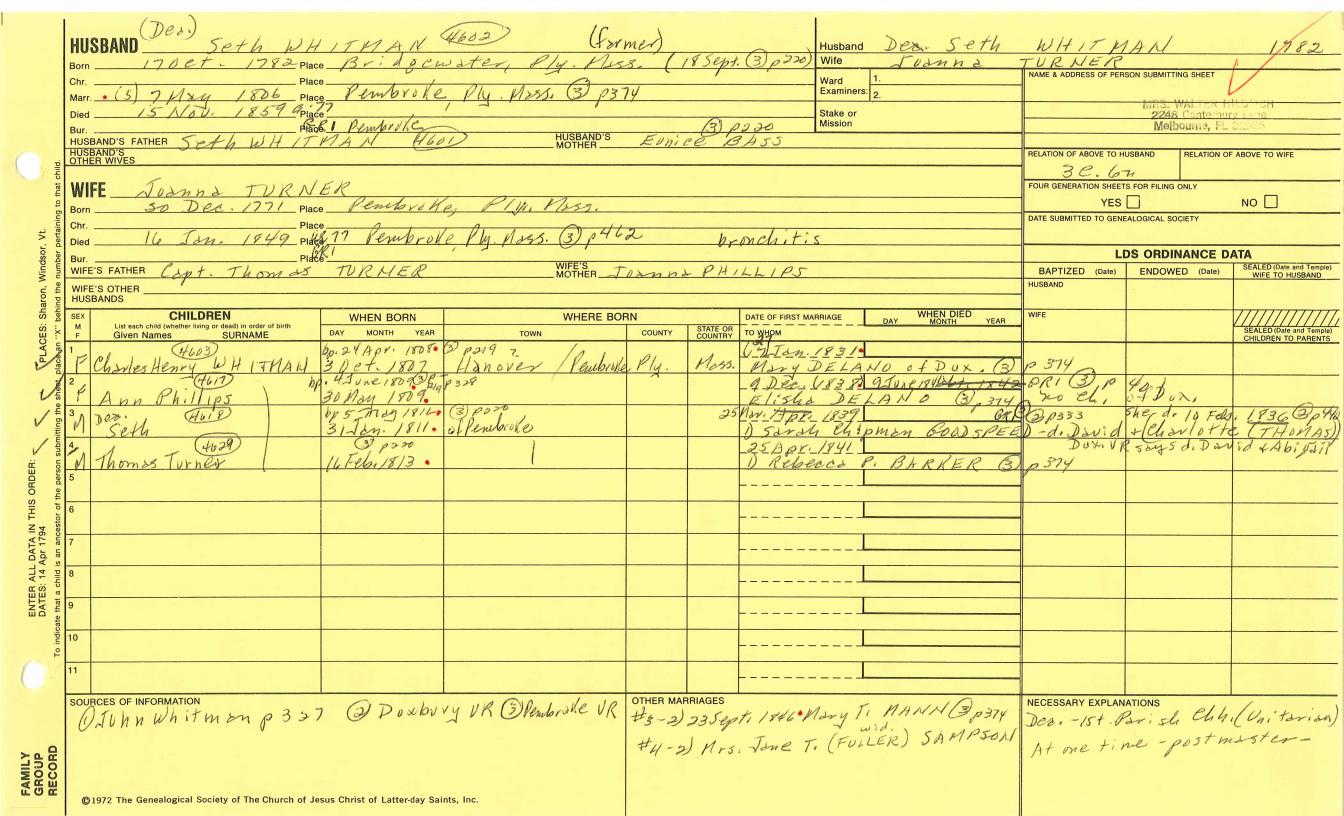 (Dea.)
HUSBAND Seth WHITMAN 4602 (farmer)
Born 17 Oct. 1782 Place Bridgewater, Ply. Mass. (18 Sept. ③ p220)
Chr. Place
Marr. (5) 7 May 1806 Place Pembroke, Ply. Mass. ③ p374
Died 15 Nov. 1859 a. 77 Place
Bur. Place GR1 Pembroke ③ p220
HUSBAND'S FATHER Seth WHITMAN 4601 HUSBAND'S MOTHER Eunice BASS
HUSBAND'S OTHER WIVES
WIFE Joanna TURNER
Born 30 Dec. 1771 Place Pembroke, Ply. Mass.
Chr. Place
Died 16 Jan. 1849 Place a. 77 Pembroke, Ply. Mass. ③ p462 bronchitis
Bur. Place GR1
WIFE'S FATHER Capt. Thomas TURNER WIFE'S MOTHER Joanna PHILLIPS
WIFE'S OTHER HUSBANDS
Husband Dea. Seth WHITMAN 1782
Wife Joanna TURNER
Ward Examiners: 1. 2.
Stake or Mission
NAME & ADDRESS OF PERSON SUBMITTING SHEET
MRS. WALTER
2248 Canterbury Lane
Melbourne, FL
RELATION OF ABOVE TO HUSBAND RELATION OF ABOVE TO WIFE
3c. 6n
FOUR GENERATION SHEETS FOR FILING ONLY
YES NO
DATE SUBMITTED TO GENEALOGICAL SOCIETY
LDS ORDINANCE DATA
BAPTIZED (Date) ENDOWED (Date) SEALED (Date and Temple) WIFE TO HUSBAND
HUSBAND
WIFE
SEALED (Date and Temple) CHILDREN TO PARENTS
SEX M F CHILDREN List each child (whether living or dead) in order of birth Given Names SURNAME
WHEN BORN DAY MONTH YEAR
WHERE BORN TOWN COUNTY STATE OR COUNTRY
DATE OF FIRST MARRIAGE TO WHOM
WHEN DIED DAY MONTH YEAR
1 4603 bp. 24 Apr. 1808 ③ p219 ? Jan. 1831
F Charles Henry WHITMAN 3 Oct. 1807 Hanover / Pembroke Ply. Mass. Mary DELANO of Dux. ③ p374
2 4617 bp. 4 June 1809 ③ p328 9 Dec. 1838 9 June 1842 GR1 ③ p
F Ann Phillips 30 May 1809 Elisha DELANO ③ p374 no ch. of Dux.
3 Dea. 4618 bp 5 May 1811 ③ p220 25 Mar. Apr. 1839 ② p333 She d. 10 Feb. 1836
M Seth 31 Jan. 1811 of Pembroke D Sarah Chipman GOODSPEED - d. David & Charlotte (THOMAS)
4 4629 ③ p220 25 Apr. 1841 Dux. VR says d. David & Abigail
M Thomas Turner 16 Feb. 1813 D Rebecca P. BARKER ③ p374
5
6
7
8
9
10
11
SOURCES OF INFORMATION
① John Whitman p 327 ② Duxbury VR ③ Pembroke VR
OTHER MARRIAGES
#3-2) 23 Sept. 1846 Mary T. MANN ③ p374
wid.
#4-2) Mrs. Jane T. (FULLER) SAMPSON
NECESSARY EXPLANATIONS
Dea. - 1st. Parish Chh. (Unitarian)
At one time - postmaster -
©1972 The Genealogical Society of The Church of Jesus Christ of Latter-day Saints, Inc.
FAMILY GROUP RECORD
ENTER ALL DATA IN THIS ORDER:
DATES: 14 Apr 1794 PLACES: Sharon, Windsor, Vt.
To indicate that a child is an ancestor of the person submitting the sheet, place an "X" behind the number pertaining to that child.